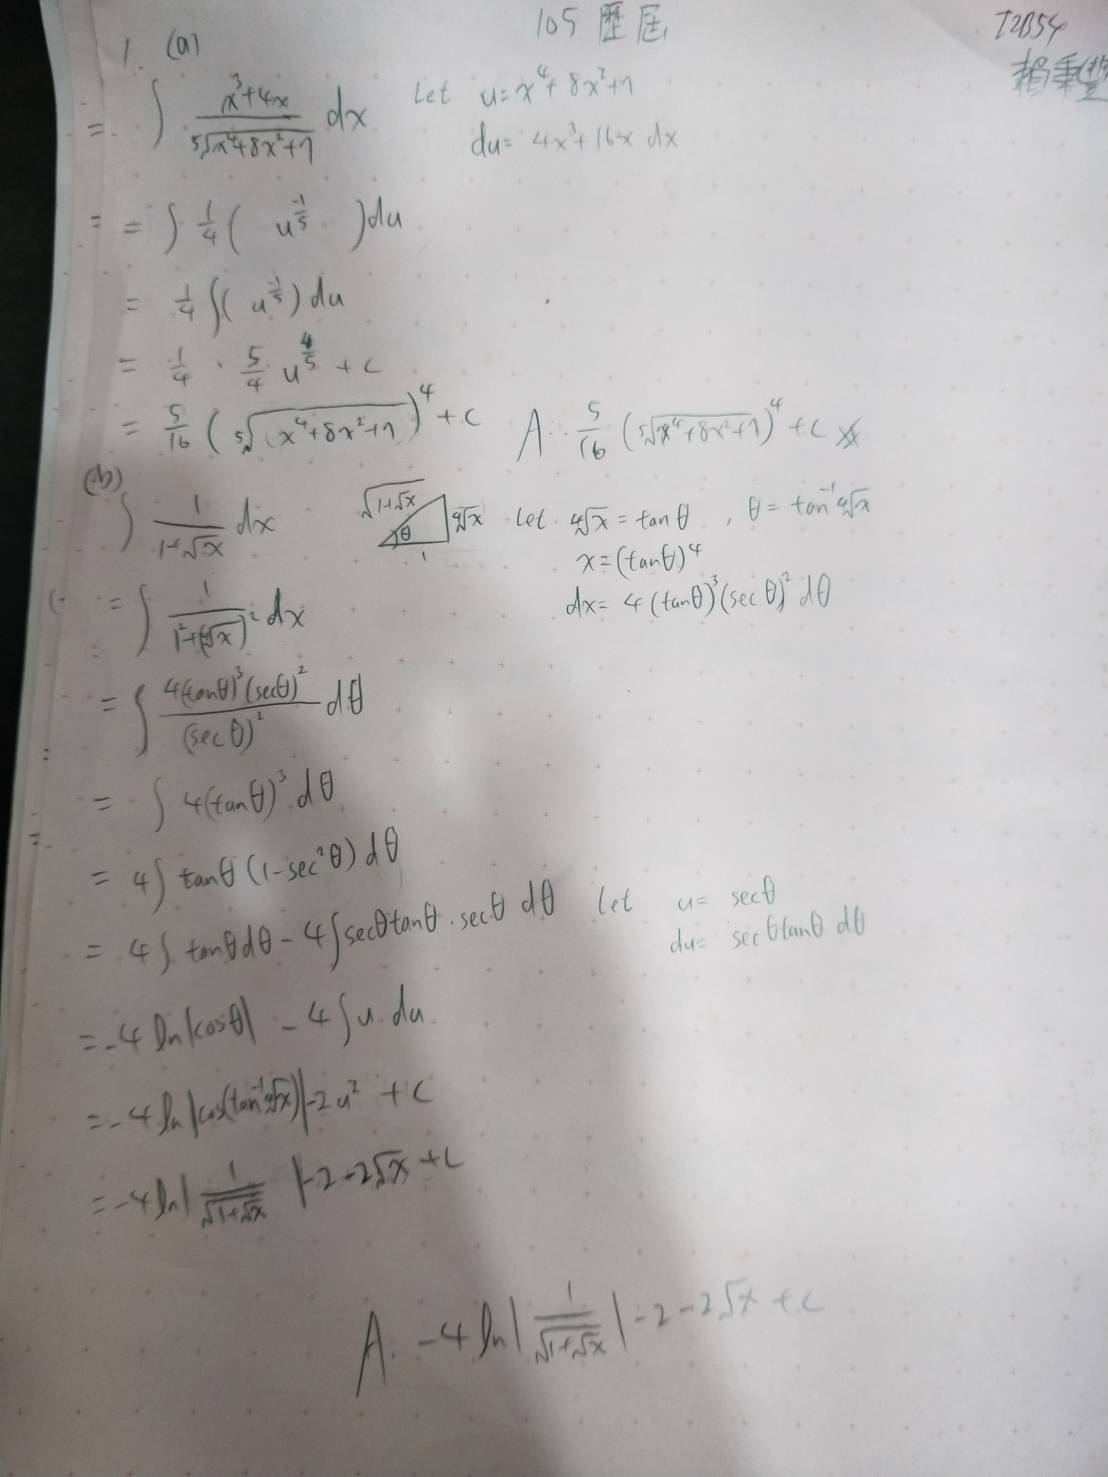 105 歷屆
T2B54
賴秉
1. (a)
= ∫ x³+4x / ⁵√x⁴+8x²+7 dx Let u=x⁴+8x²+7
du= 4x³+16x dx
= = ∫ 1/4 ( u^(-1/5) ) du
= 1/4 ∫( u^(-1/5) ) du
= 1/4 · 5/4 u^(4/5) + c
= 5/16 ( ⁵√(x⁴+8x²+7) )⁴ + c A. 5/16 (⁵√x⁴+8x²+7)⁴ + c
(b)
∫ 1 / 1+√x dx √1+√x ⁴√x θ 1 let ⁴√x = tanθ , θ = tan⁻¹ ⁴√x
x=(tanθ)⁴
dx= 4(tanθ)³(secθ)² dθ
= ∫ 1 / 1²+(⁴√x)² dx
= ∫ 4(tanθ)³(secθ)² / (secθ)² dθ
= ∫ 4(tanθ)³ dθ
= 4∫ tanθ (1-sec²θ) dθ
= 4∫ tanθdθ - 4∫secθtanθ·secθ dθ let u= secθ
du= secθtanθ dθ
=-4 ln|cosθ| - 4∫u du
=-4 ln|cos(tan⁻¹⁴√x)|-2u² + c
=-4 ln| 1/√1+√x |-2-2√x + c
A. -4 ln| 1/√1+√x |-2-2√x + c